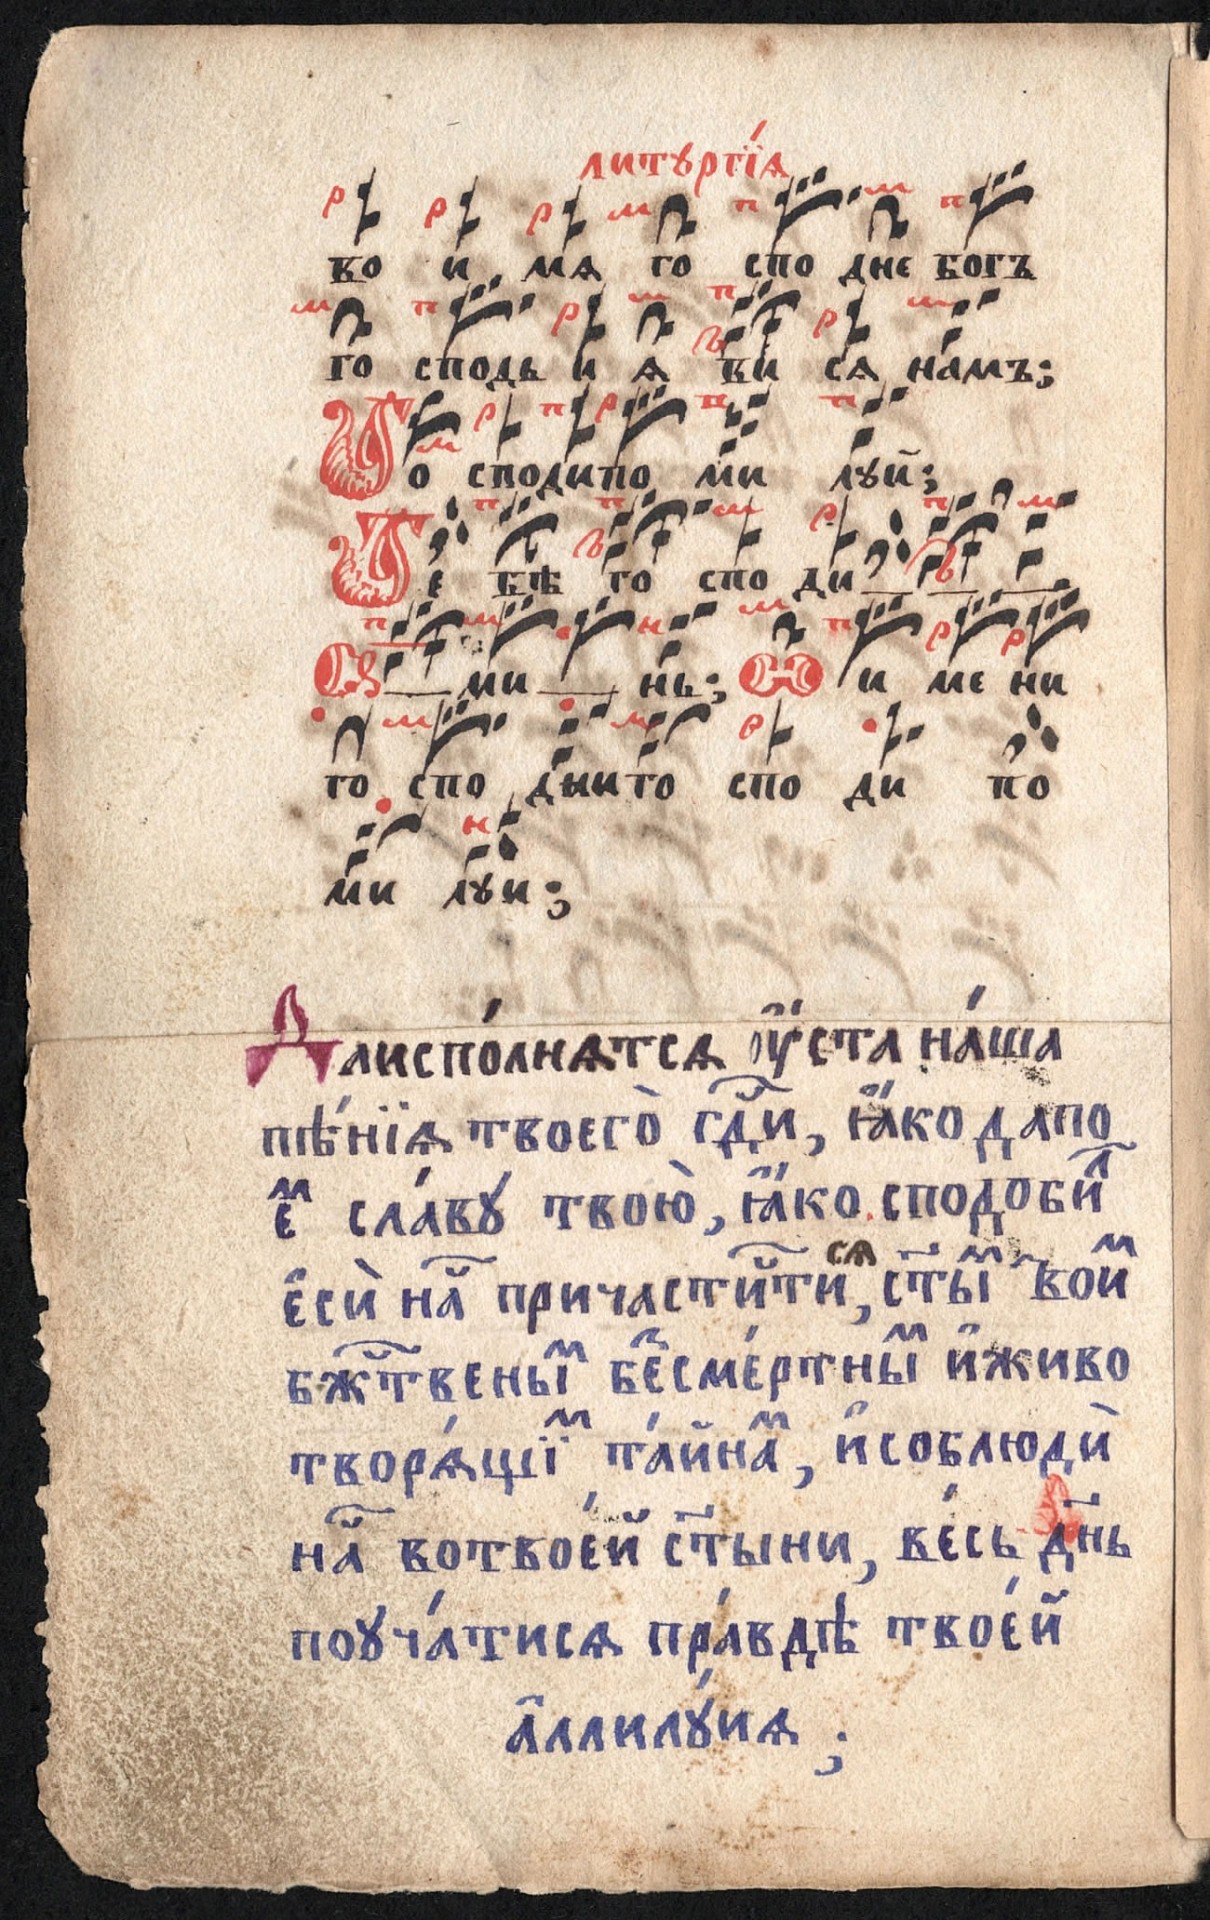 литꙋргі́ѧ
во и мѧ го спо дне богъ
го сподь и ѧ ви сѧ на́мъ;
Го сподипо ми лꙋй;
Те бѣ го спо ди
А ми нь; Ѿ и ме ни
го спо дни го спо ди по
ми лꙋи;
Даиспо́лнѧтсѧ ᲂу҆ста̀ на́ша
пѣ́нїѧ твоего̀ гдⷭ҇и, ꙗ҆́ко дапо
еⷨ сла́вꙋ твою̀, ꙗ҆́ко сподобиⷧ
є҆сѝ наⷭ҇ причастиⷭ҇ти сѧ, ст҃ыⷨ твоиⷨ
бжⷭ҇твеныⷨ бе҆сме́ртныⷨ и҆живо
творѧ́щїⷨ та́йнаⷨ, и҆соблюдѝ
наⷭ҇ вотвое́й ст҃ыни, ве́сь дн҃ь
поꙋча́тисѧ пра́вдѣ твое́й
а҆ллилꙋ́иѧ ;